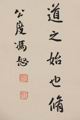 道之始也脩
公度馮恕